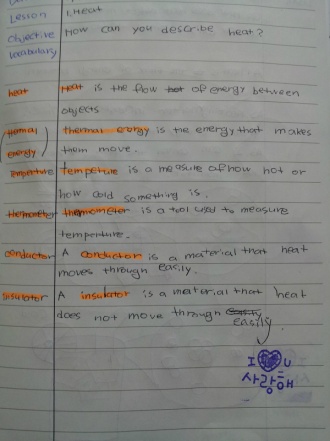 Lesson 1. Heat
Objective How can you describe heat?
Vocabulary
heat Heat is the flow of energy between
objects
thermal thermal energy is the energy that makes
energy them move.
temperture tempeture is a measure of how hot or
how cold something is.
thermometer thermometer is a tool used to measure
temperture.
conductor A conductor is a material that heat
moves through easily.
insulator A insulator is a material that heat
does not move through easily
easily.
I U
사랑해